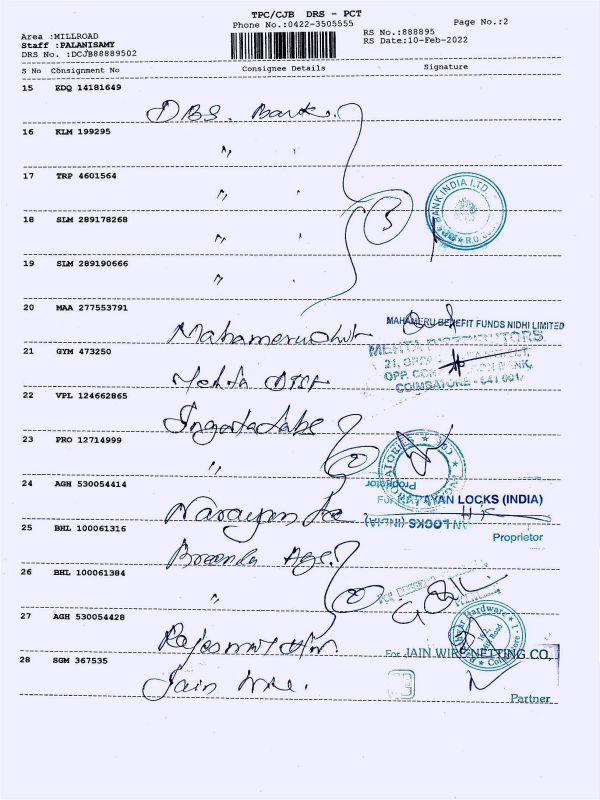 TPC/CJB DRS - PCT
Phone No.:0422-3505555
Page No.:2
Area :MILLROAD
Staff :PALANISAMY
DRS No. :DCJB88889502
RS No.:888895
RS Date:10-Feb-2022
S No Consignment No Consignee Details Signature
15 EDQ 14181649
DBS. Bank.
16 KLM 199295
〃
17 TRP 4601564
〃
BANK INDIA LTD.
18 SLM 289178268
〃
3
19 SLM 289190666
〃
20 MAA 277553791
Mahameru
MAHAMERU BENEFIT FUNDS NIDHI LIMITED
21 GYM 473250
MEHTA DISTRIBUTORS
21, OPP.
OPP. BANK,
COIMBATORE - 641 001
Mehta
22 VPL 124662865
23 PRO 12714999
〃
2
Proprietor
24 AGH 530054414
Narayan
For NARAYAN LOCKS (INDIA)
LOCKS (INDIA)
25 BHL 100061316
Proprietor
26 BHL 100061384
〃
2
27 AGH 530054428
Hardware
Road
For JAIN WIRE NETTING CO.,
28 SGM 367535
Jain Wire.
Partner